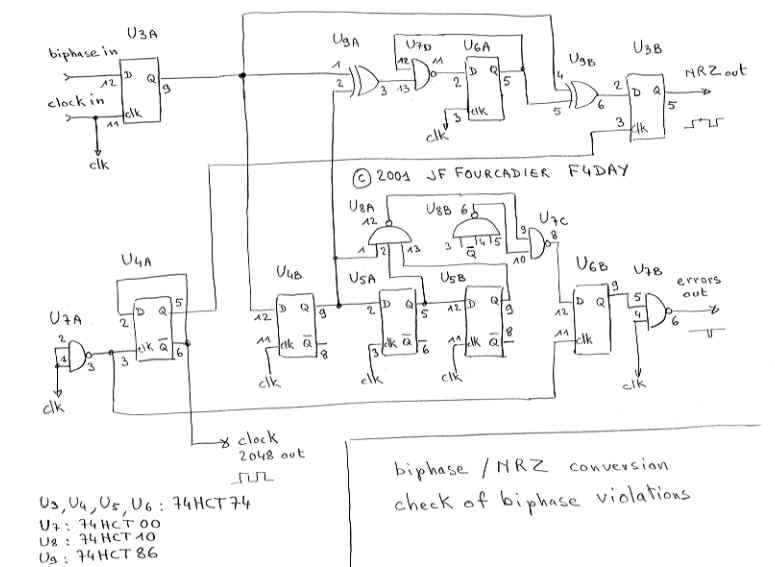 U3A
biphase in
12 D Q 9
clock in
11 clk
clk
U9A
1
2
3
U7D
12
13
11
U6A
2 D Q 5
3 clk
clk
U9B
4
5
6
U3B
2 D Q 5
3 clk
NRZ out
© 2001 JF FOURCADIER F4DAY
U8A
12
1 2 13
U8B
6
3 4 5
Q
U7C
9
10
8
U4A
2 D Q 5
3 clk Q 6
U7A
2
1
3
clk
U4B
12 D Q 9
11 clk Q 8
clk
U5A
2 D Q 5
3 clk Q 6
clk
U5B
12 D Q 9
11 clk Q 8
clk
U6B
12 D Q 9
11 clk
U7B
5
4
6
clk
errors
out
clock
2048 out
biphase / NRZ conversion
check of biphase violations
U3, U4, U5, U6 : 74HCT74
U7 : 74HCT00
U8 : 74HCT10
U9 : 74HCT86